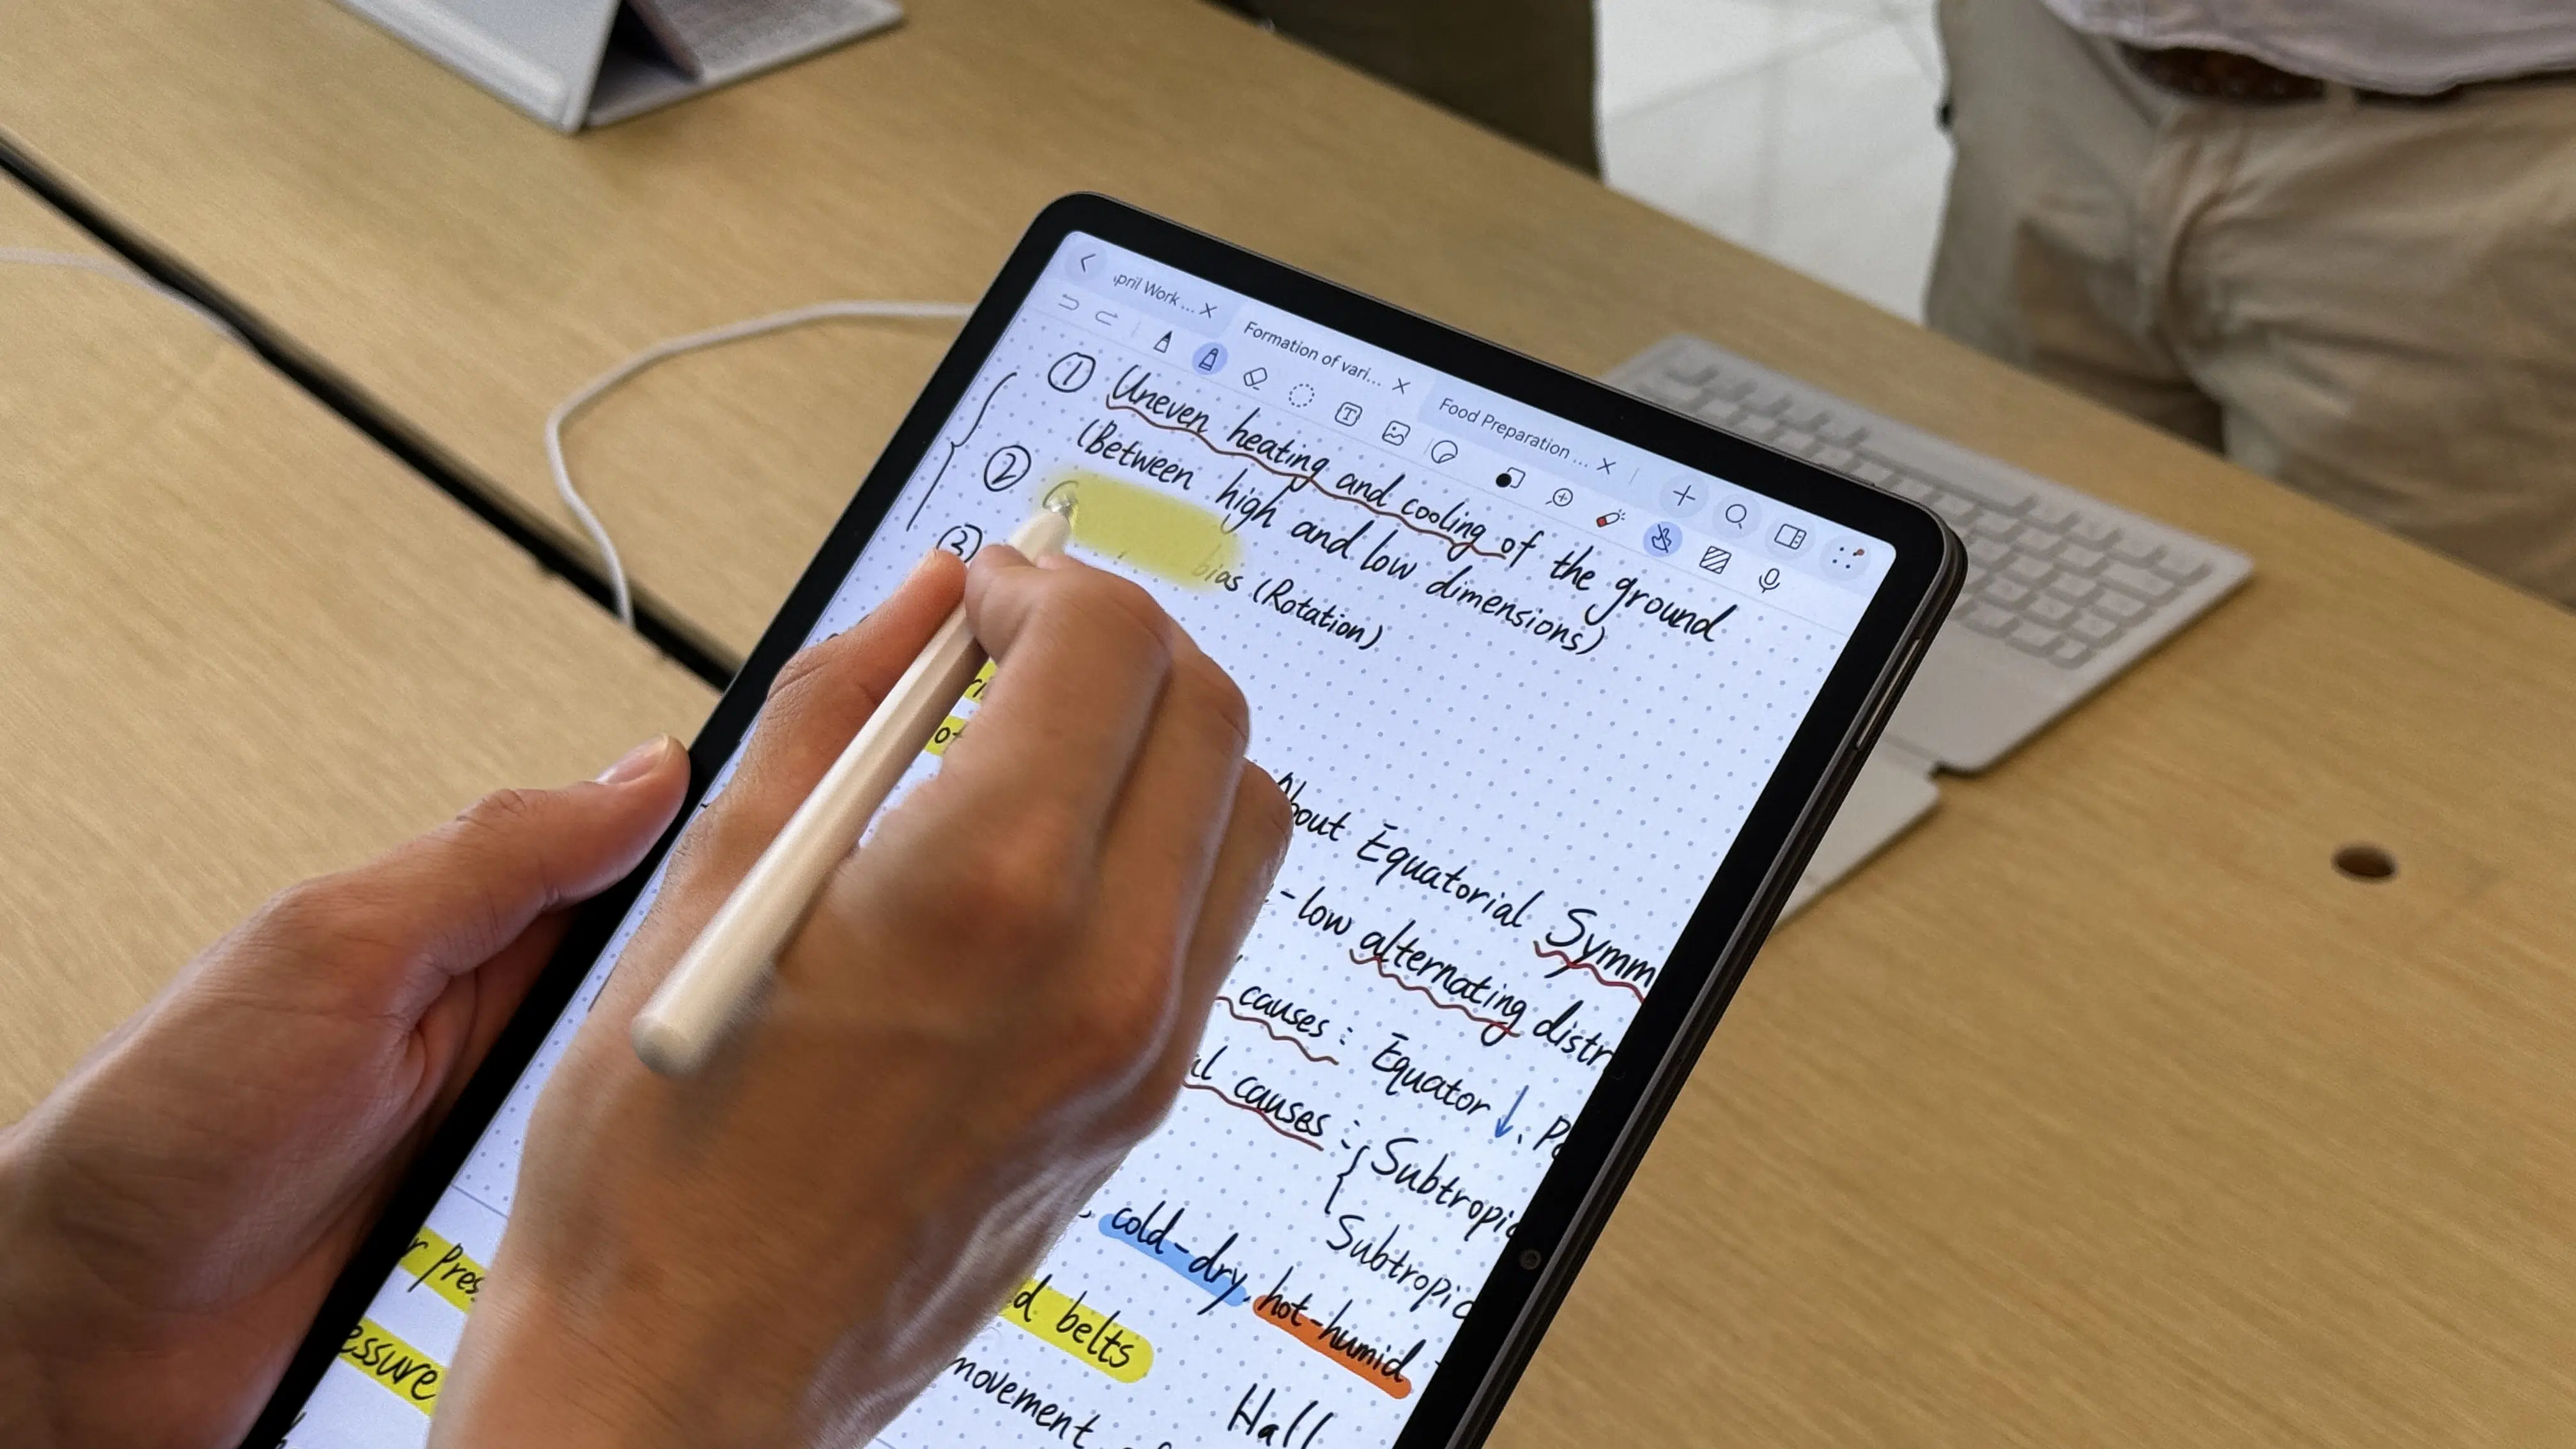 pril Work ...
Formation of vari...
Food Preparation ...
① Uneven heating and cooling of the ground
(Between high and low dimensions)
②
③ bias (Rotation)
About Equatorial Symm
-low alternating distr
causes: Equator ↓. Po
al causes: { Subtropic
Subtropic
cold-dry, hot-humid
r Pres
d belts
essure
movement
Hall